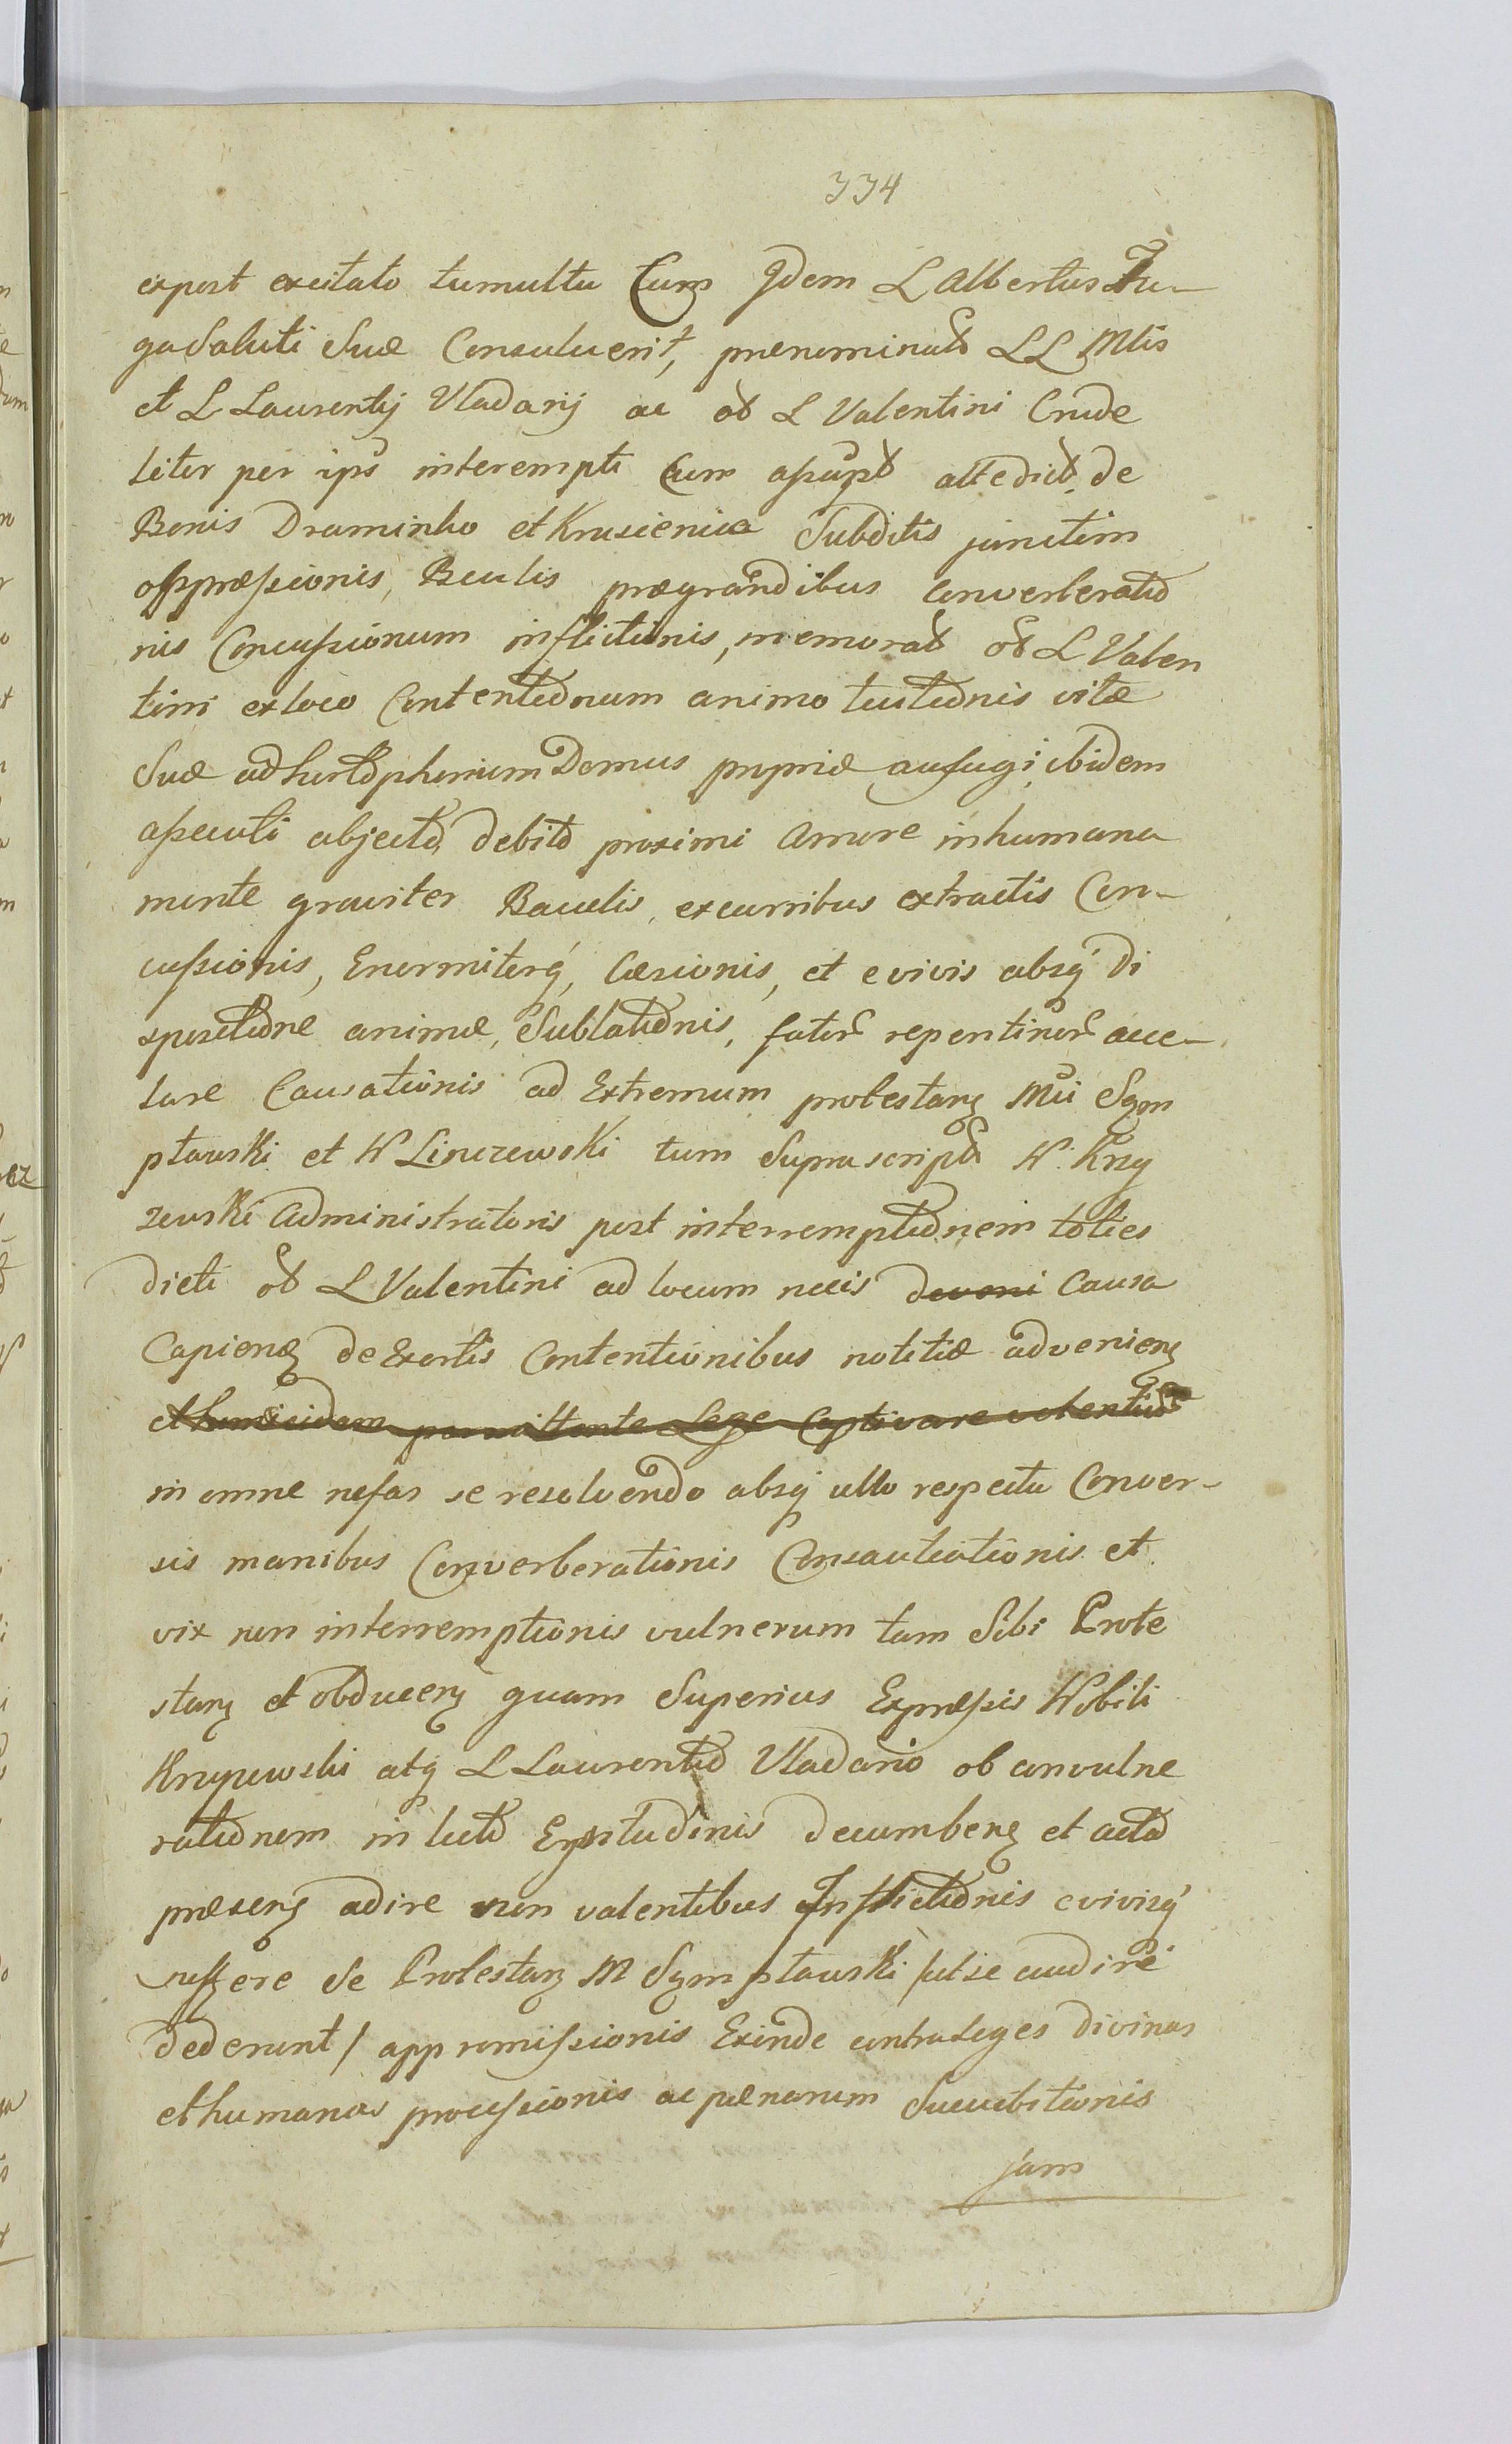 334
expost excitato tumultu Cum Idem L Albertus Fu-
ga Saluti Suæ Consuluerit, prænominatt LL Mtis
et L Laurentij Vladarij ac ol L Valentini Crude
liter per ips interempti Cum assupt altedict de
Bonis Draminko et Krusienica Subditis junctim
oppræssionis, Baculis prægrandibus converberatio
nis Concussionum inflictionis, memorat ol L Valen
tini ex loco Contentionum animo tuitionis vitæ
Suæ ad hospitium Domus propriæ aufugi, ibidem
assecuti abjecto debito proximi Amore inhumana
mente graviter Baculis, ex curribus extractis Con-
cussionis, Enormiterq, Cæsionis, et e vivis absq di
spositione animæ, Sublationis, fator repentinor acce-
lare Causationis ad Extremum protestan Mci Sym
ptawski et N Linczewski tum Suprascript N. Krzy
zewski Administratoris post interremptionem toties
dicti ol L Valentini ad locum necis deveni Causa
Capien de Exortis Contentionibus notitiæ advenien
et homicidam permittente Lege Captivare volentium
in omne nefas se resolvendo absq ullo respectu Conver-
sis manibus Converberationis Consauciationis et
vix non interremptionis vulnerum tam Sibi Prote
stan et obducen quam Superius Expressis Nobili
Krzyzewski atq L Laurentio Vladario ob convulne
rationem in lecto Egritudinis decumben et acta
præsen adire non valentibus Inflictionis e vivisq
Protestan M Symptawski /ut se audire
dederunt/ appromissionis Exinde contra leges divinas
et humanas processionis ac pænarum Succubitionis
jam